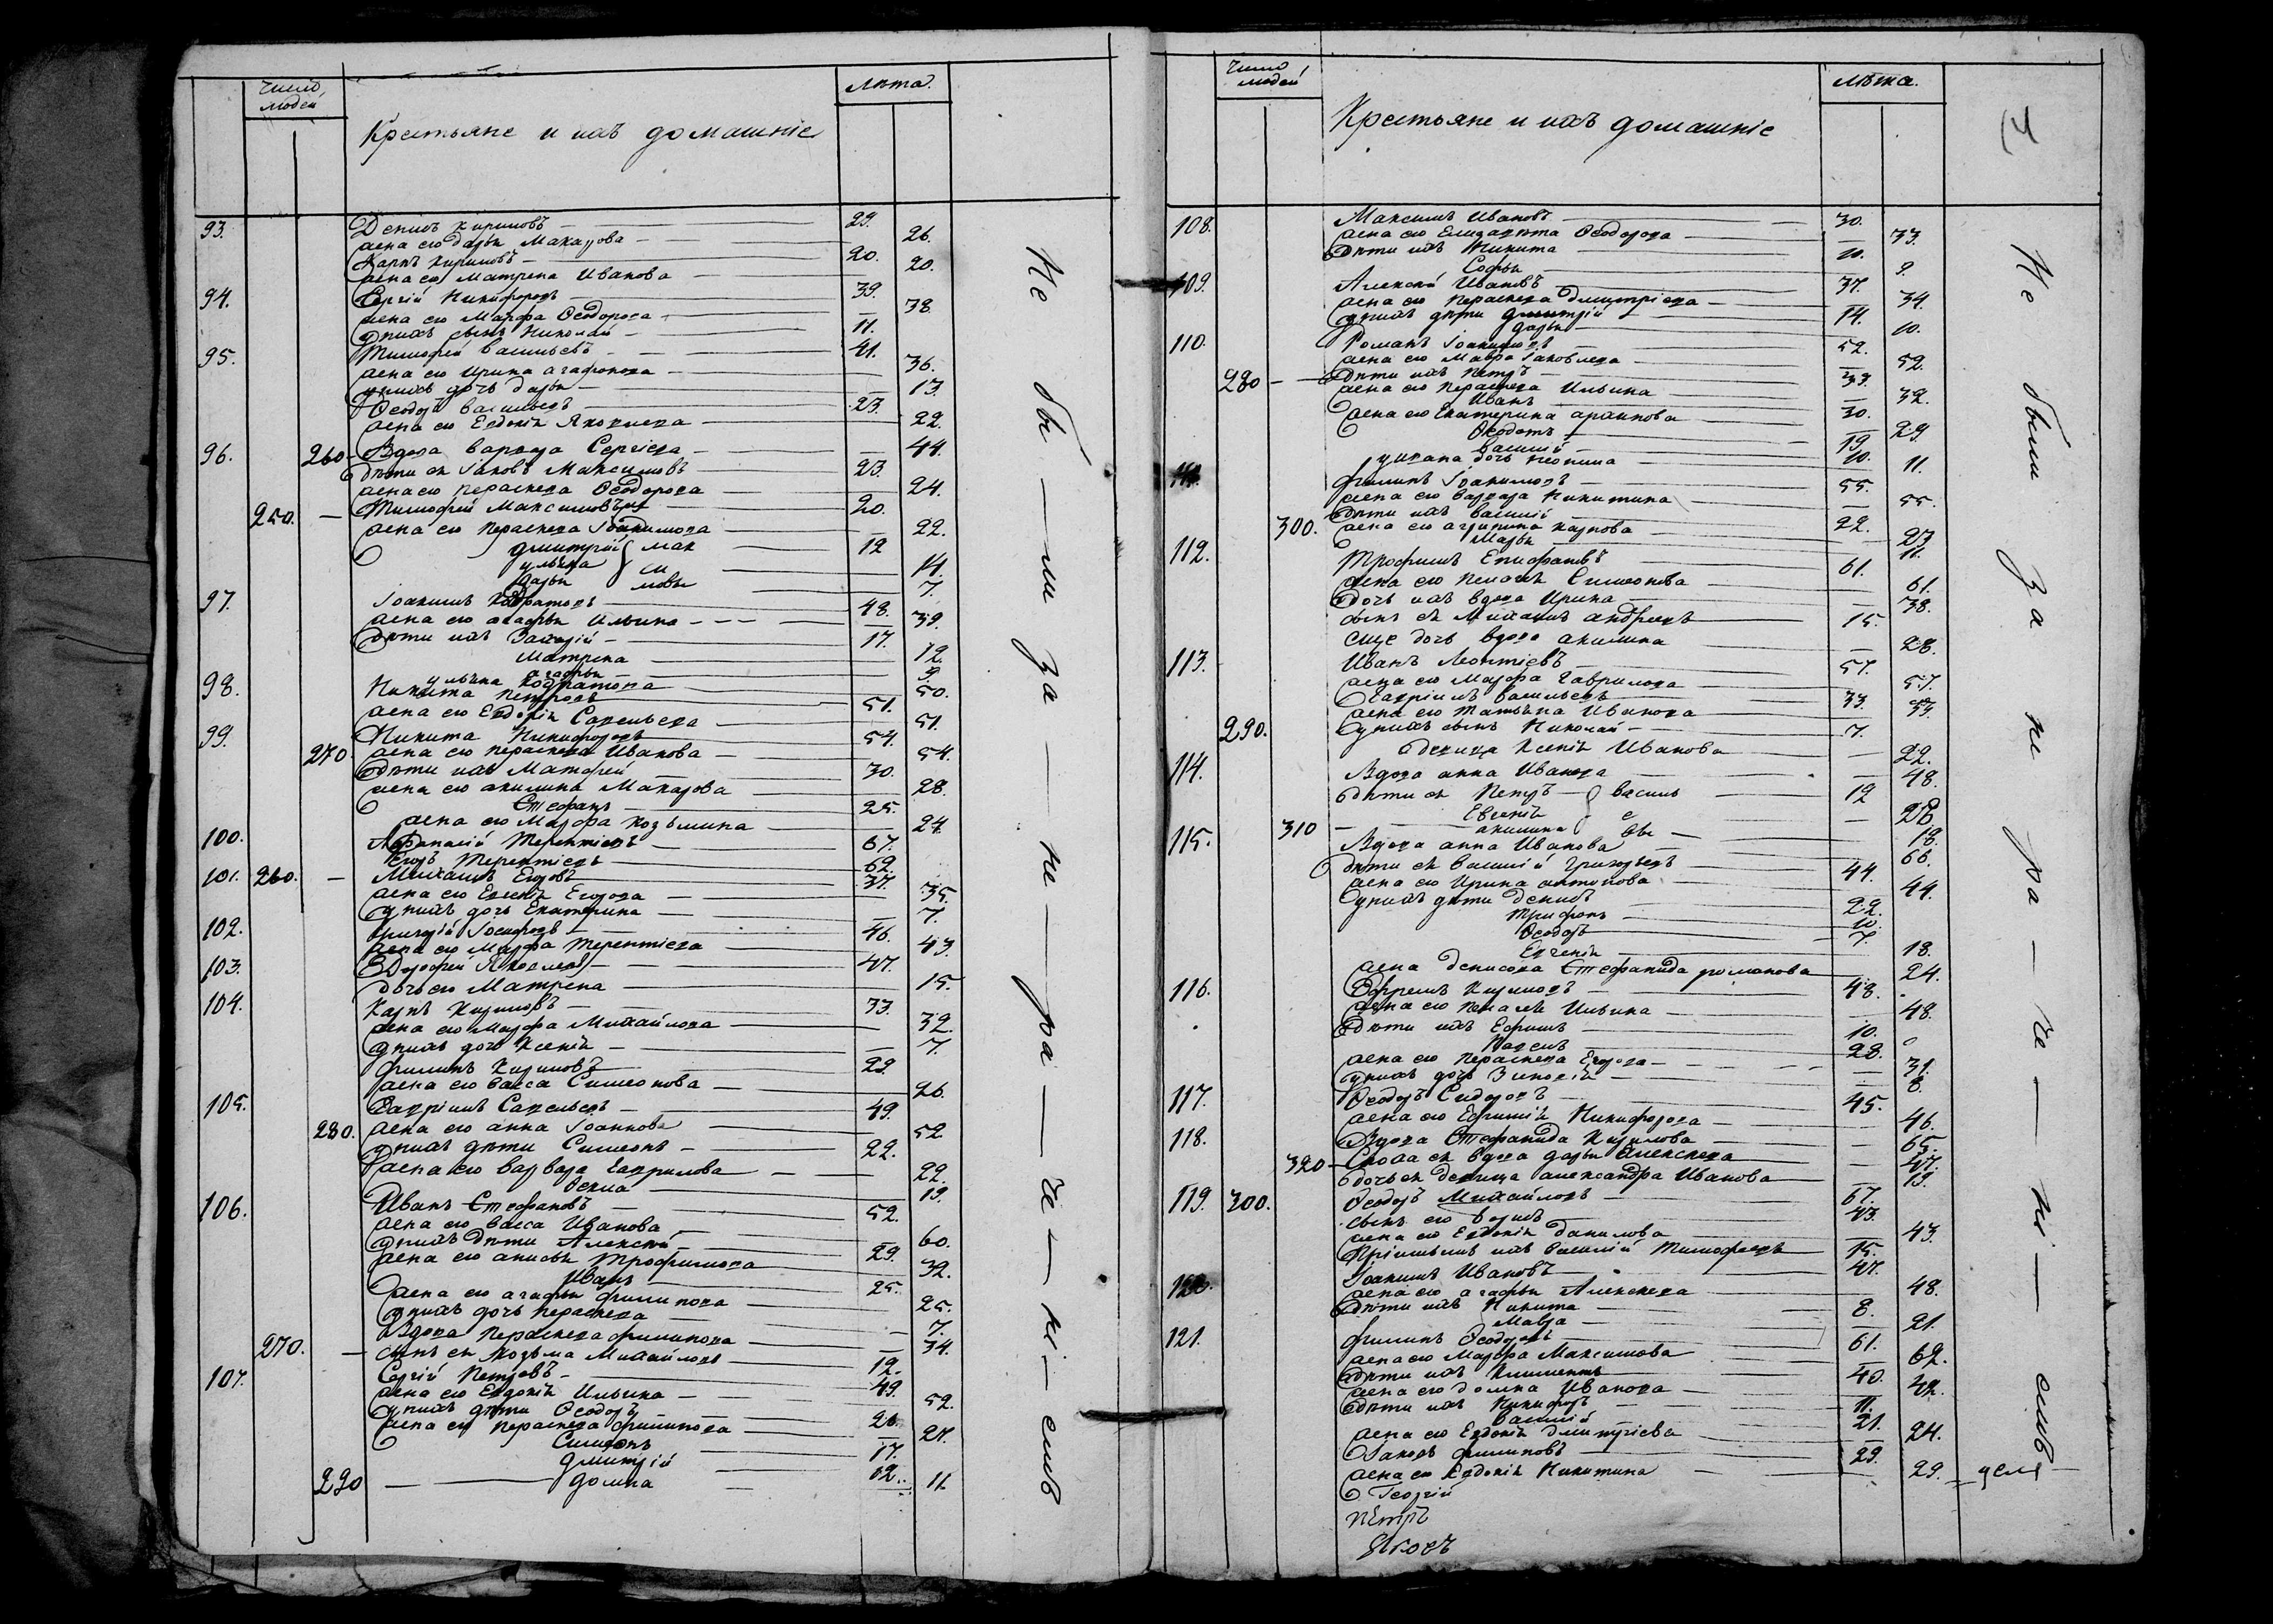 Число людей
Крестьяне и ихъ домашніе
Лѣта.
93. Денисъ Кириловъ 29.
жена его Дарья Макарова 26.
Карпъ Кириловъ 20.
жена ег Матрена Иванова 20.
94. Сергій Никифоровъ 39.
жена его Марфа Ѳеодорова 38
у нихъ сынъ Николай 11.
95. Тимофей Васильевъ 41.
жена ею Ирина Агафонова 36.
у нихъ дочь Дарья 13.
Ѳеодоръ Васильевъ 23.
жена ею Евдокія Яковлева 22.
96. 260 Вдова Варвара Сергіева 44.
дѣти ея Іаковъ Максимовъ 23.
жена ею Пераскева Ѳеодорова 24.
250. Тимофей Максимовъ 20.
жена ею Пераскева Іоакимова 22.
Дмитрій 12
Ульяна 14.
Дарья 7.
97. Іоакимъ Кодратовъ 48.
жена ею Агафья Ильина 39.
дѣти ихъ Захарій 17.
Матрена 12
Агафья 9
Ульяна Кодратова 50.
98. Никита Петровъ 51.
жена ею Евдокія Савельева 51.
99. Никита Никифоровъ 54.
270 жена ею Пераскева Иванова 54.
дѣти ихъ Матфей 30.
жена ею Акилина Макарова 28.
Стефанъ 25.
жена ею Марфа Козьмина 24.
100. Афанасій Терентіевъ 67.
Егоръ Терентіевъ 62.
101. 260. Михаилъ Егоровъ 37.
жена ею Евгенія Егорова 35.
у нихъ дочь Екатерина 7.
102. Григорій Іосифовъ 46.
жена ею Марфа Терентіева 43.
103. Дорофей Яковлевъ 47.
дочь ею Матрена 15.
104. Карпъ Кириловъ 33.
жена ею Марфа Михайлова 32.
у нихъ дочь Ксенія 7.
Филипъ Кириловъ 29
жена ею Васса Симеонова 26.
105. Гавріилъ Савельевъ 49.
280. жена его Анна Іоаннова 52
у нихъ дѣти Симеонъ 22.
жена ею Варвара Гаврилова 22.
Ѳекла 19.
106. Иванъ Стефановъ 52.
жена ею Васса Иванова 60.
у нихъ дѣти Алексѣй 29.
жена ею Анисья Трофимова 32.
Иванъ 25.
жена ею Агафья Филипова 25.
у нихъ дочь Пераскева 7.
Вдова Пераскева Филипова 34.
270. сынъ ея Козьма Михайловъ 12.
107. Сергій Петровъ 49.
жена ею Евдокія Ильина 52.
у нихъ дѣти Ѳеодоръ 26.
жена ею Пераскева Филипова 27.
Симеонъ 17.
Дмитрій 12.
290 Домна 11
Не бы — ли за — не — ра — че — ні — емъ
Число людей
Крестьяне и ихъ домашніе
Лѣта.
108. Максимъ Ивановъ 30.
жена ею Елизавета Ѳеодорова 33.
дѣти ихъ Никита 10.
Софья 9.
109. Алексѣй Ивановъ 37.
жена ею Пераскева Дмитріева 34.
у нихъ дѣти Дмитрій 14.
Дарья 10.
110. Романъ Іоакимовъ 52.
жена ею Мавра Іаковлева 52.
280 дѣти ихъ Петръ 33.
жена ею Пераскева Ильина 32.
Иванъ 30.
жена ею Екатерина Архипова 29
Ѳеодотъ 19
Василій 10.
у Ивана дочь Неонила 11.
Филипъ Іоакимовъ 55.
жена ею Варвара Никитина 55.
дѣти ихъ Василій 22.
300. жена ею Агрипина Карпова 27
Марья 11.
112. Трофимъ Епифановъ 61.
жена ею Пелагея Симеонова 61.
дочь ихъ вдова Ирина 38.
сынъ ея Михаилъ Андреевъ 15.
еще дочь вдова Акилина 28.
113. Иванъ Леонтіевъ 57.
жена ею Марфа Гаврилова 57.
Гавріилъ Васильевъ 33.
жена ею Татьяна Иванова 33.
290. у нихъ сынъ Николай 7.
девица Ксенія Иванова 22.
114. Вдова Анна Иванова 48.
дѣти ея Петръ 12
Евгенія 28
310 Акилина 18.
115. Вдова Анна Иванова 66.
дѣти ея Василій Григорьевъ 44.
жена ею Ирина Антонова 44.
у нихъ дѣти Денисъ 22.
Трифонъ 10
Ѳеодоръ 7.
Евгенія 18.
жена Денисова Стефанида Романова 24.
116. Ефремъ Кириловъ 48.
жена ею Пелагея Ильина 48.
дѣти ихъ Ефимъ 10.
28.
жена ею Пераскева Егорова 31.
у нихъ дочь Зиновія 8.
117. Ѳеодоръ Сидоровъ 45.
жена ею Ефимія Никифорова 46.
118. Вдова Стефанида Кирилова 65.
320 Сноха ея вдова Дарья Алексѣева 47.
дочь ея девица Александра Иванова 19.
119. 300. Ѳеодоръ Михайловъ 67.
сынъ ею Борисъ 43.
жена ею Евдокія Данилова 43.
Пріемышъ ихъ Василій Тимофеевъ 15.
120. Іоакимъ Ивановъ 47.
жена ею Агафья Алексѣева 48.
дѣти ихъ Никита 8.
Мавра 21.
121. Филипъ Ѳеодоровъ 61.
жена ею Марфа Максимова 62.
дѣти ихъ Климентъ 40.
жена ею Домна Иванова 42.
дѣти ихъ Никифоръ 11.
Василій 21.
жена ею Евдокія Дмитріева 24.
Іаковъ Филиповъ 29.
жена ею Евдокія Никитина 29.
Георгій
Петръ
Яковъ
Не были за не ра — че — ні — емъ